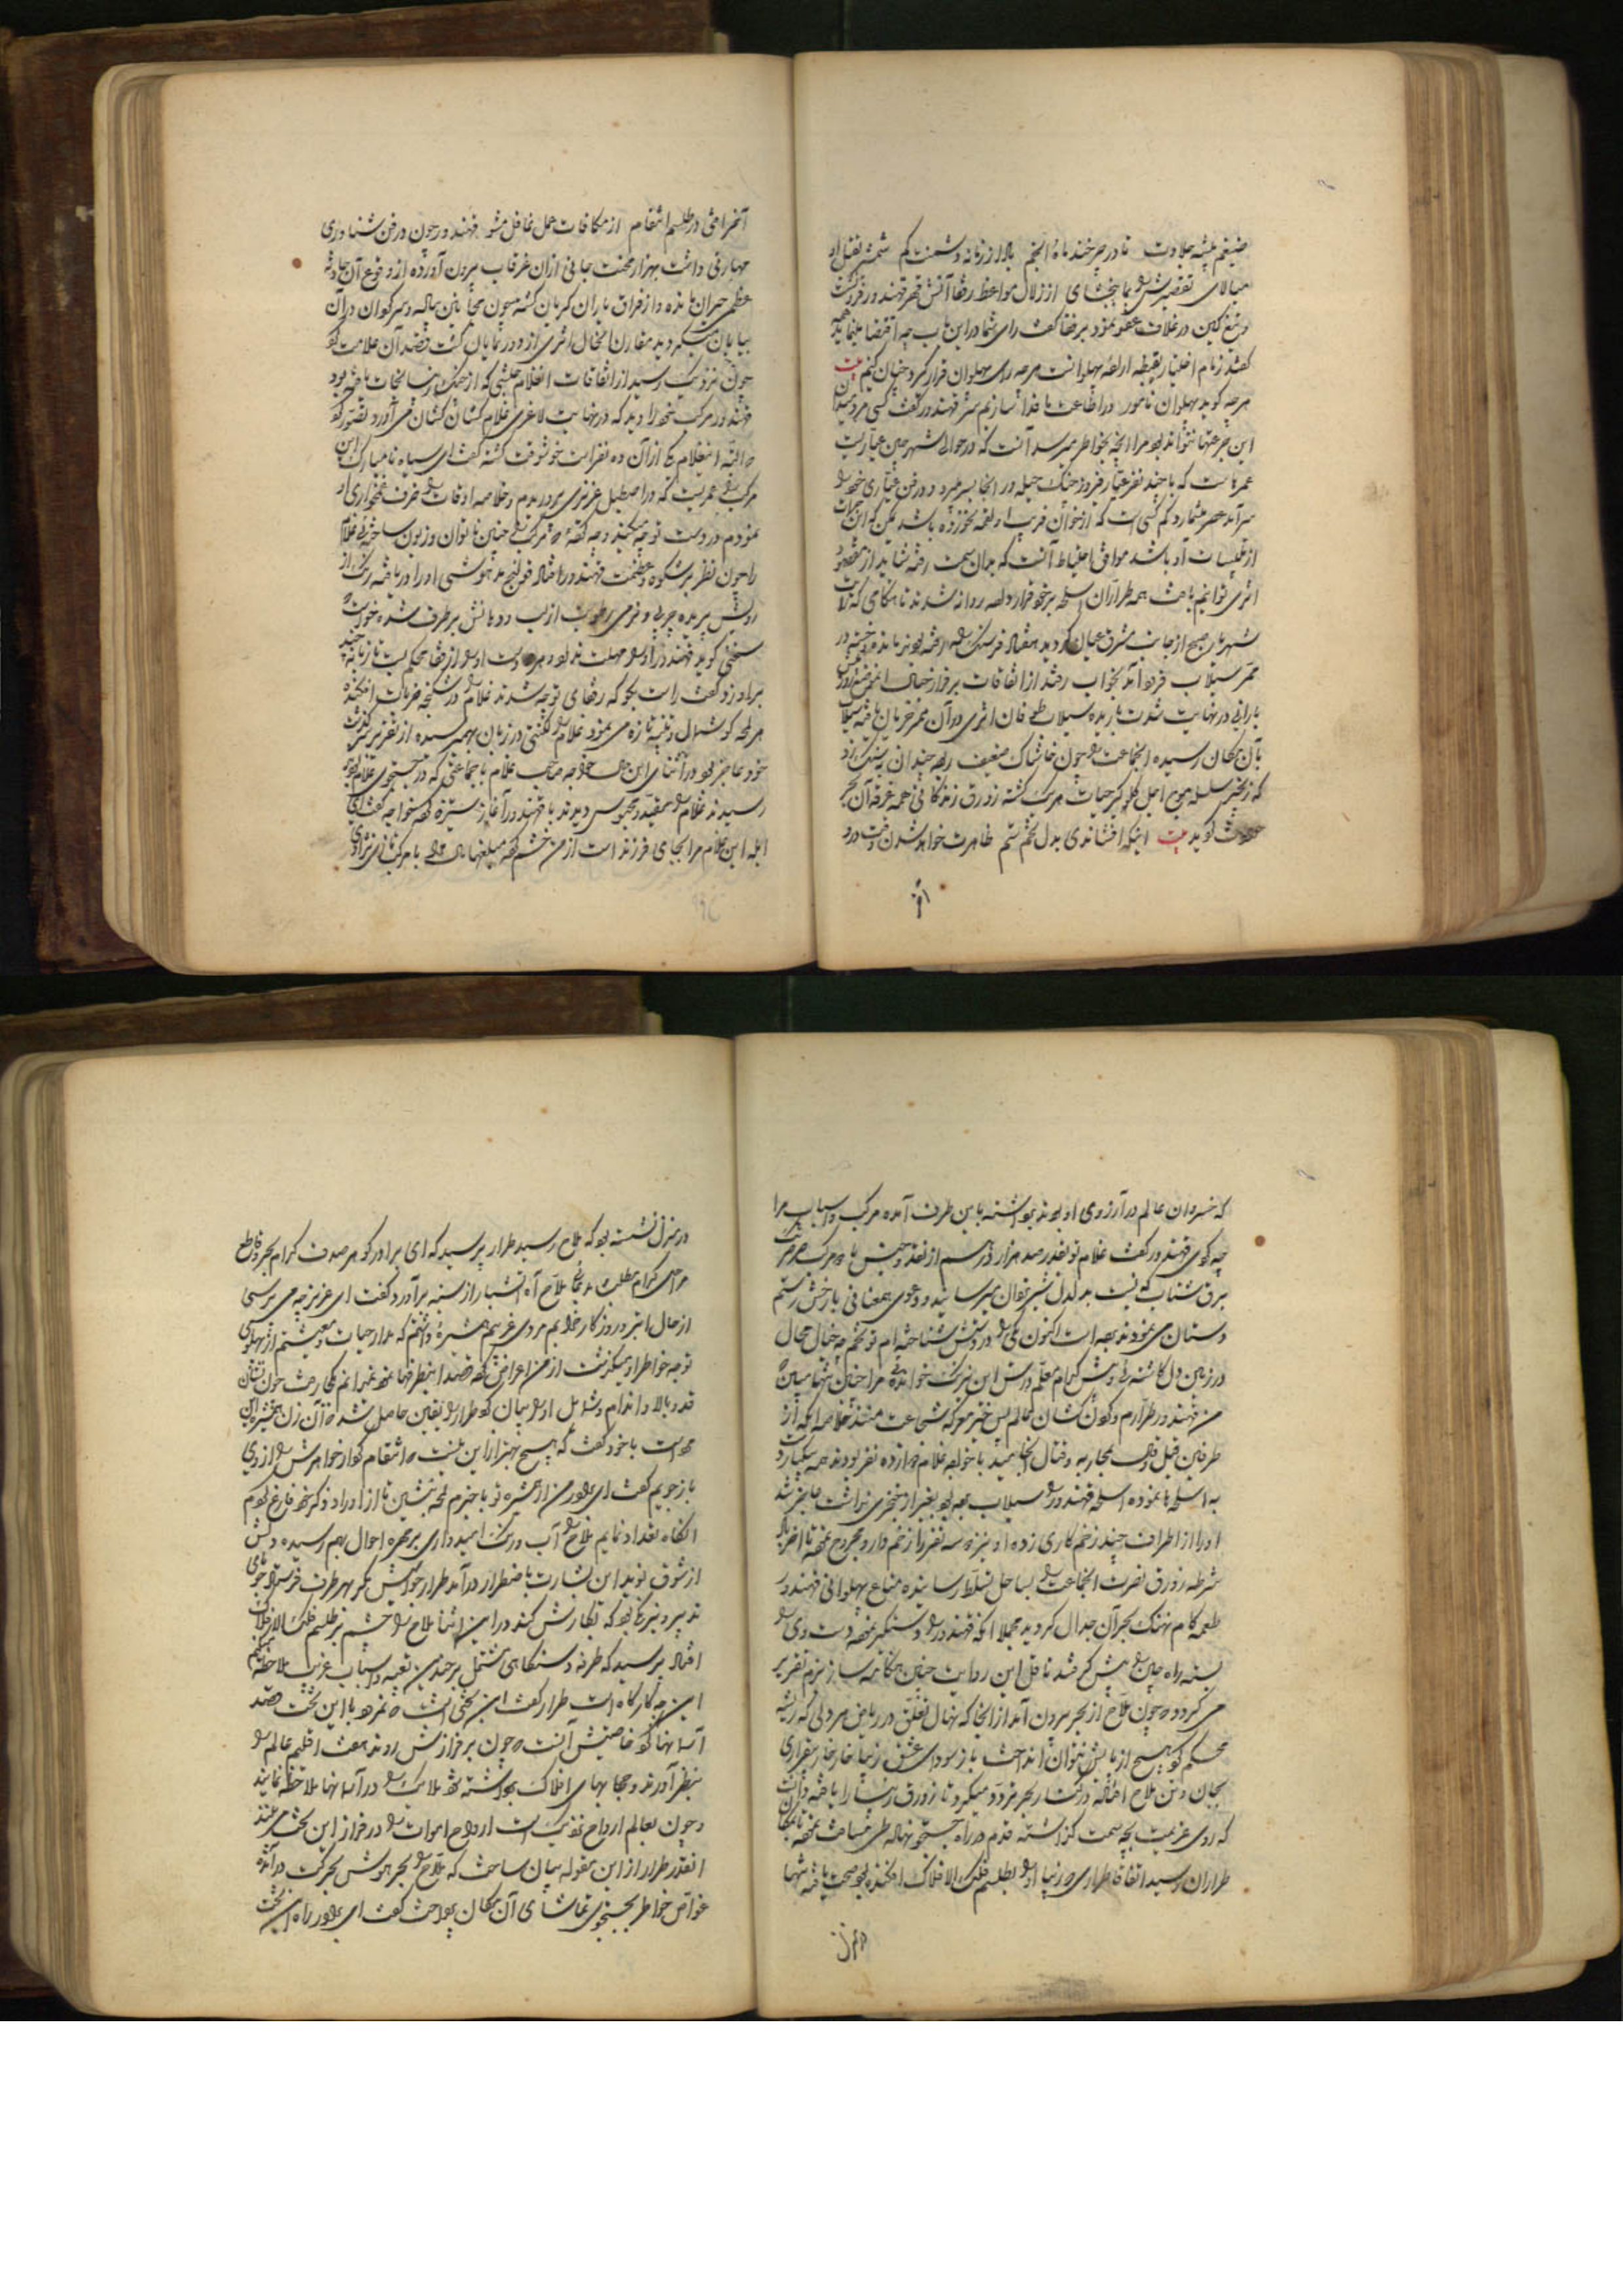 ضیغم بیشه جلاوت تا در چرخند ماه و انجم بالا از زمانه دشمنت کم شمشیر بقتل او
میالای تقصیرش بما ببخشای از زلال مواعظ رفقا آتش قهر قهندور فرو نشست
و تیغ کین در غلاف عفو نمود برفقا گفت رای شما در این باب چه اقتضا مینماید همه
گفتند زمام اختیار بقبضه اراده پهلوانست هرچه رای پهلوان قرار گیرد چنان کنیم بیت
هرچه گوید پهلوان نامور در اطاعت ما فدا سازیم سر قهندور گفت کسی مرد میدان
این جرعتها نتواند بود مرا آنچه بخاطر میرسد آنست که در حوالی شهر چین عیاریست
که با چند نفر عیار در آنجا بسر میبرد و در فن عیاری خود را
سرآمد عصر میشمارد کم کسی است که از خوان فریب او لقمه نخورده باشد ممکن که این
از او باشد موافق احتیاط آنست که بدان سمت رفته شاید از مقصود
اثری توانیم یافت همه طراران اسلحه بر خود قرار داده روانه شدند تا هنگامی که
شهربان صبح از جانب مشرق عیان گردید هفتاد فرسنگ راه رفته بودند مانده و خسته در
ممر سیلاب فرود آمده بخواب رفتند از اتفاقات بر فراز جبال
بارانی در نهایت شدت باریده سیلاب طوفان اثری در آن ممر جریان یافته سیلاب
بآن مکان رسیده آنجماعت را چون خاشاک ضعیف ربوده چندان
که زنجیر سلسله موج اجل گلوگیر حیات هر یک گشته زورق زندگانی همه غرقه آن بحر
گوید بیت اینکه افشاندی بدل تخم ستم ظاهرت خواهد شدن وقت درو
آخر
آخر افتی در طلسم انتقام از مکافات عمل غافل مشو قهندور چون در فن شناوری
مهارتی داشت بهزار محنت جانی از آن غرقاب بیرون آورده از وقوع آن حادثه
عظمی حیران مانده و از فراق یاران گریان گشته همچون مجانین واله و سرگردان در آن
بیابان میگردید مقارن آنحال اثری از دور نمایان گشت قصد آن علامت کرد
چون نزدیک رسید از اتفاقات آنغلام حبشی که از جنگ نجات یافته بود
قهندور مرکب خود را دید که در نهایت لاغری غلام کشان کشان می آورد تصور کرد
که البته اینغلام یکی از آن ده نفر است خوشوقت گشته گفت ای سیاه نامبارک این
مرکب را عمریست که در اصطبل عزیزی پروردم و خلاصه اوقات را صرف غمخواری او
نمودم در دست تو چه میکند و چه گفته که مرکب را چنین ناتوان و زبون ساخته غلام
را چون نظر بر شکوه و عظمت قهندور افتاد قولنج مدهوشی او را دریافته رنگ از
رویش پریده چربی و نرمی رطوبت از لب و دهانش برطرف شده خواست
سخنی گوید قهندور او را مهلت نداده هر دو دست او را از قفا محکم بست تازیانه چند
بر او زد و گفت راست بگو که رفقای تو چه شدند غلام را در شکنجه ضربات افکنده
هر لحظه گوشمال و تنبیه تازه می نمود غلام را لکنتی در زبان بهمرسیده از تقریر سرگذشت
خود عاجز بود در اثنای این حال خواجه صاحب غلام با جماعتی که در جستجوی غلام بودند
رسیدند غلام را مقید و محبوس دیدند با قهندور آغاز ستیزه کرده خواجه گفت ای
ابله این غلام مرا بجای فرزند است از من خشم کرده مبلغها مال با مرکب تازی نژادی
که خسروان عالم در آرزوی او بودند برداشته باین طرف آمده مرکب و اسباب مرا
چه کردی قهندور گفت غلام تو بقدر صد هزار درهم از نقد و جنس با مرکب صرصرتک
برق شتاب که نسبت بدلدل شیر یزدان میرسانید و دعوی همعنانی با رخش رستم
دستان می نمود دزدیده است اکنون که دزدش شناخته ام تو تخم چه خیال محال
در زمین دل کاشته و پیش کدام معلم درس این نیرنگ خوانده مرا چنین تنها مبین که
من قهندور طرارم و گردن کشان عالم پیش خنجر معرکه شجاعت منند خلاصه آنکه از
طرفین قیل و قال بمحاربه و قتال انجامید با خواجه غلام دوازده نفر بودند همه یکبار دست
به اسلحه ها نموده اسلحه قهندور را سیلاب برده بود بغیر از خنجری نداشت
او را از اطراف چند زخم کاری زده او نیز سه نفر را زخمدار و مجروح نموده تا آخر باد
شرطه زورق نصرت آنجماعت را بساحل تسلط رسانیده متاع پهلوانی قهندور
طعمه کام نهنگ بحر آن جدال گردید مجملا آنکه قهندور را دستگیر نموده دست وی را
بسته راه چین را پیش گرفتند ناقل این روایت چنین هنگامه ساز بزم تقریر
می گردد که چون ملاح از بحر بیرون آمد از آنجا که نهال تعلق در ریاض هر دلی که ریشه
محکم کرد هیچ از پایش نتوان انداخت باز سودای عشق زیبا خار خار بیقراری
بجان و تن ملاح افتاده در کنار بحر تردد میکرد تا زورق زیبا را یافته دانست
که روی عزیمت بچه سمت گذاشته قدم در راه جستجو نهاده طی مسافت نموده تا بمکان
طراران رسید اتفاقا طراری که زیبا او را بطلسم فلک الافلاک افکنده بود صحت یافته تنها
در منزل
در منزل نشسته بود که ملاح رسید طرار پرسید که ای برادر گوهر صدف کدام بحر و قاطع
مراحل کدام مطلب ملاح آه آتشبار از سینه برآورد و گفت ای عزیز چه می پرسی
از حال ابتر و روزگار خرابم مردی غریبم همشیره داشتم که مدار حیات و معیشتم از پهلوی
توجه خاطر او میگذشت از من اعراض کرده قصد اینطرفها نموده نمیدانم کجا رفت چون نشان
قد و بالا و اندام و شمایل او را بیان کرد طرار را یقین حاصل شد که آن زن همشیره این
مرد است با خود گفت که هیچ بهتر از این نیست که انتقام کردار خواهرش را از وی
بازجویم گفت ای برادر من از همشیره تو با خبرم لحظه بنشین تا از اوراد و ذکر خود فارغ گردم
آنگاه نمایم ملاح را آب و رنگ امیدواری بر چهره احوال بهم رسیده دلش
از شوق نوید این بشارت باضطراب درآمد طرار حواس فکر بهر طرف فرستاده جویای
تدبیر و نیرنگی بود که بکارش کند در این اثنا ملاح را چشم بر طلسم فلک الافلاک
افتاد پرسید که طرفه دستگاهی مشتمل بر چندین تعبیه و اسباب غریب ملاحظه میکنم
این چه کارگاه است طرار گفت این تختی است که نمرود با این تخت قصد
آسمانها کرد خاصیتش آنست که چون بر فرازش روند هفت اقلیم عالم را
بنظر آورند و حجابهای افلاک برداشته شود ملایک را در آسمانها ملاحظه نمایند
و چون بعالم ارواح نزدیک است ارواح اموات را در فراز این تخت می بینند
آنقدر طرار از این مقوله بیان ساخت که ملاح را بحر هوش بحرکت درآمده
غواص خاطر بجستجوی تماشای آن مکان پرداخت گفت ای برادر راه این تخت